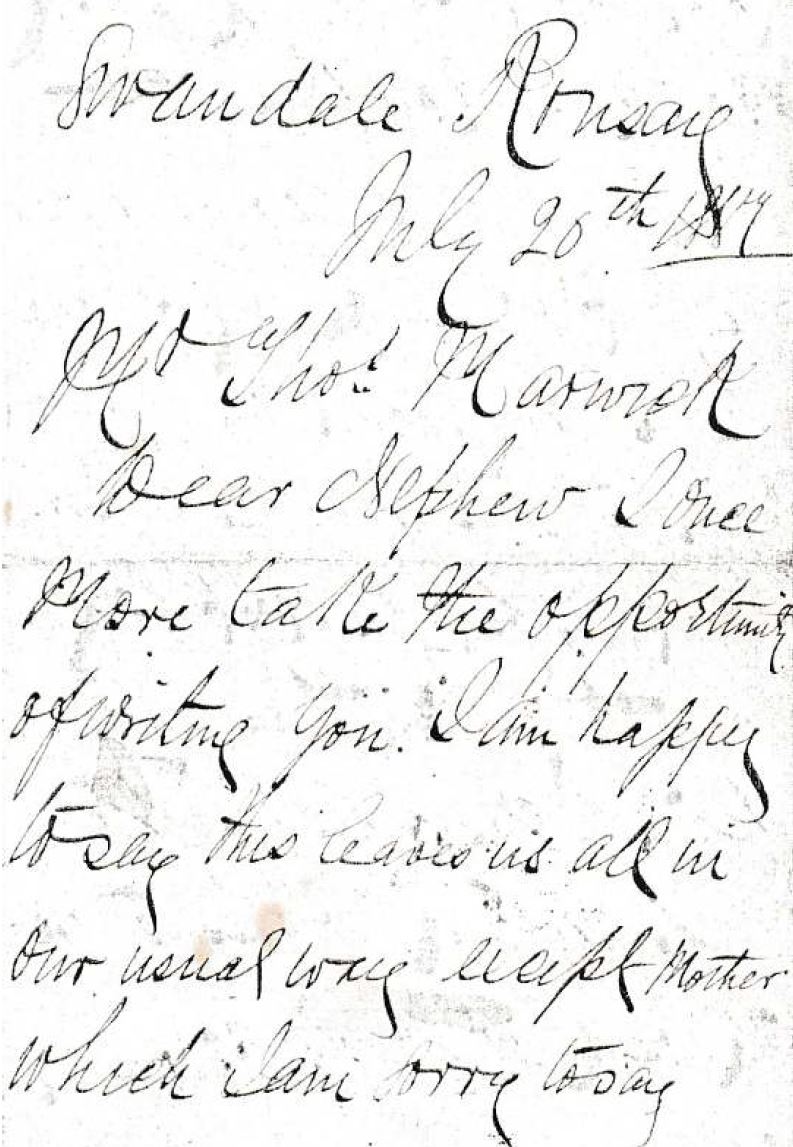 Swandale Rousay
July 20th
Mr Thos Marwick
Dear Nephew I once
More take the opportunity
of writing you. I am happy
to say this leaves us all in
our usual way except Mother
which I am sorry to say